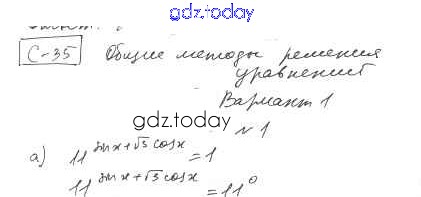 gdz.today
С-35 Общие методы решения
уравнений
Вариант 1
gdz.today
№1
а) 11^(sin x + √3 cos x) = 1
11^(sin x + √3 cos x) = 11^0